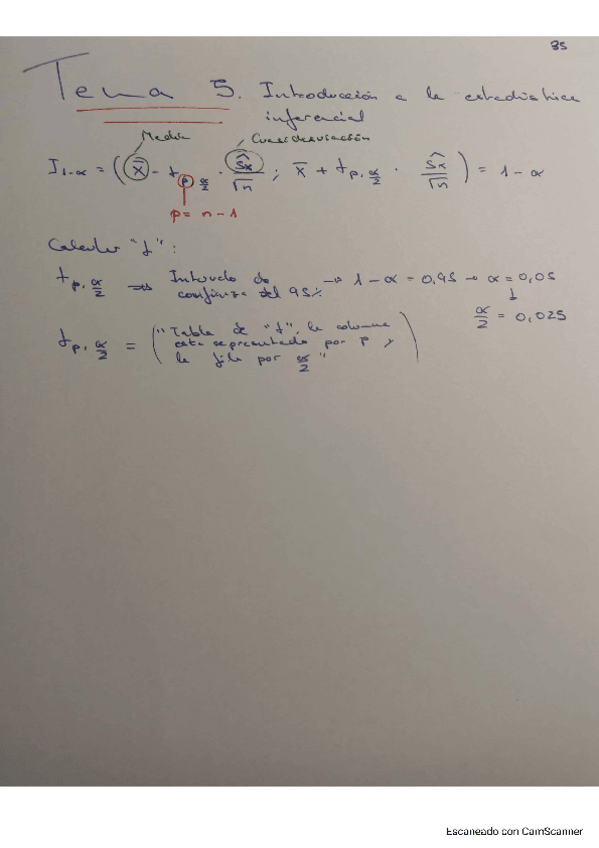 35
Tema 5. Introducción a la estadística
inferencial
Media
Cuasidesviación
I₁₋α = ( x̄ - t p, α/2 · ŝx/√n ; x̄ + t p, α/2 · ŝx/√n ) = 1 - α
p = n - 1
Calcular "t":
t p, α/2 ⇒ Intervalo de → 1 - α = 0,95 → α = 0,05
confianza del 95% ↓
α/2 = 0,025
t p, α/2 = ( "Tabla de "t", la columna
esta representada por p y
la fila por α/2" )
Escaneado con CamScanner